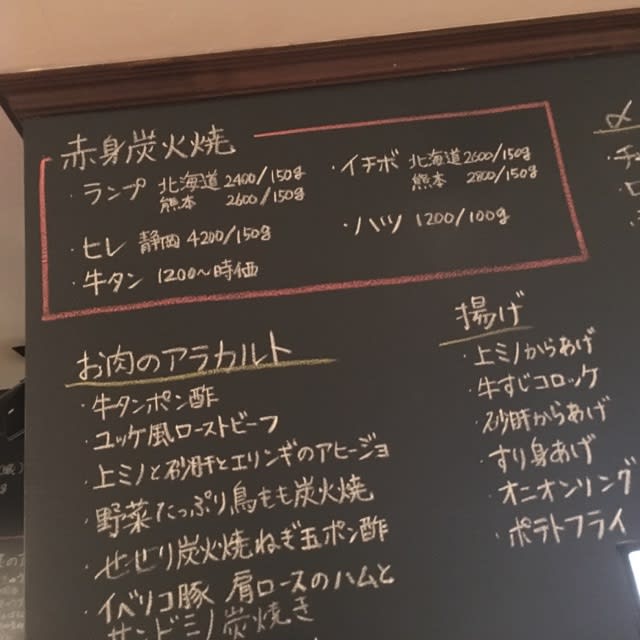 赤身炭火焼
・ランプ 北海道 2400/150g
熊本 2600/150g
・ヒレ 静岡 4200/150g
・牛タン 1200〜時価
・イチボ 北海道 2600/150g
熊本 2800/150g
・ハツ 1200/100g
お肉のアラカルト
・牛タンポン酢
・ユッケ風ローストビーフ
・上ミノと砂肝とエリンギのアヒージョ
・野菜たっぷり鳥もも炭火焼
・せせり炭火焼ねぎ玉ポン酢
・イベリコ豚 肩ロースのハムと
炭焼き
揚げ
・上ミノからあげ
・牛すじコロッケ
・砂肝からあげ
・すり身あげ
・オニオンリング
・ポテトフライ
〆